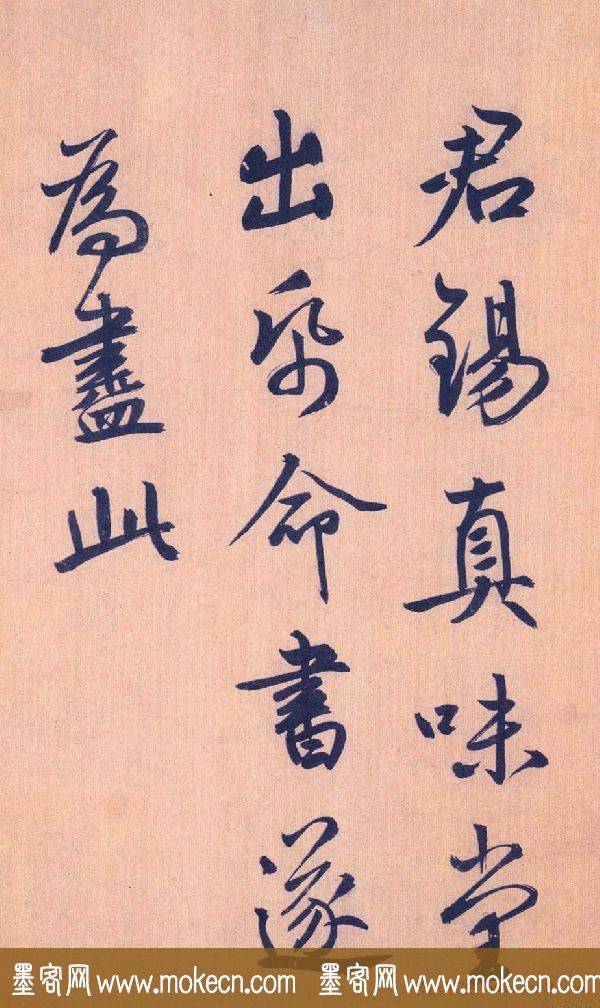 君錫真味堂
出帋命書遂
為盡此
墨客网 www.mokecn.com 墨客网 www.mokecn.com